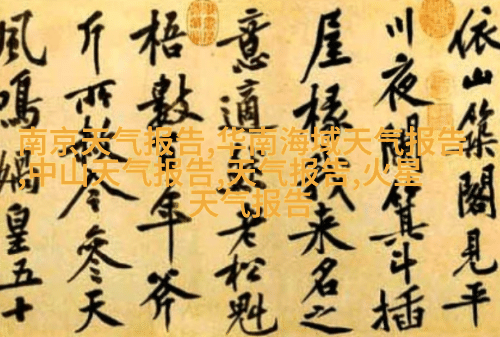 依山築閣見平
川夜闌箕斗插
屋椽我來名之
意適然老松魁
梧數百年斧
斤所赦今參天
風鳴媧皇五十
南京天气报告,华南海域天气报告
,中山天气报告,天气报告,火星
天气报告